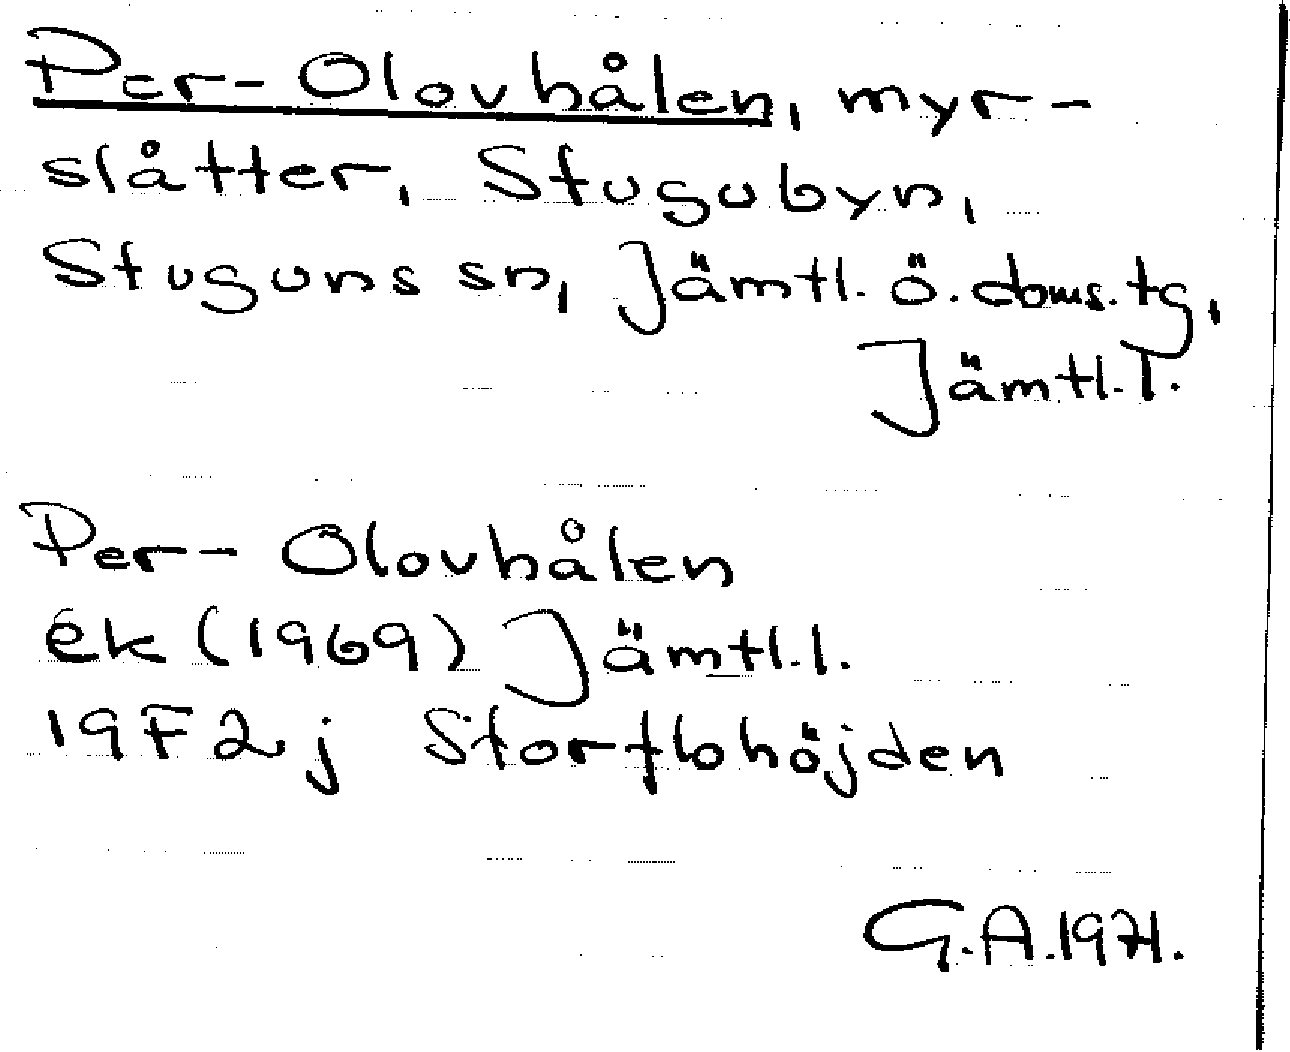 Per-Olovhålen, myr-
slåtter, Stugubyn,
Stuguns sn, Jämtl. ö. doms. tg,
Jämtl. l.
Per-Olovhålen
ek (1969) Jämtl. l.
19F2j Storflohöjden
G.A. 1971.